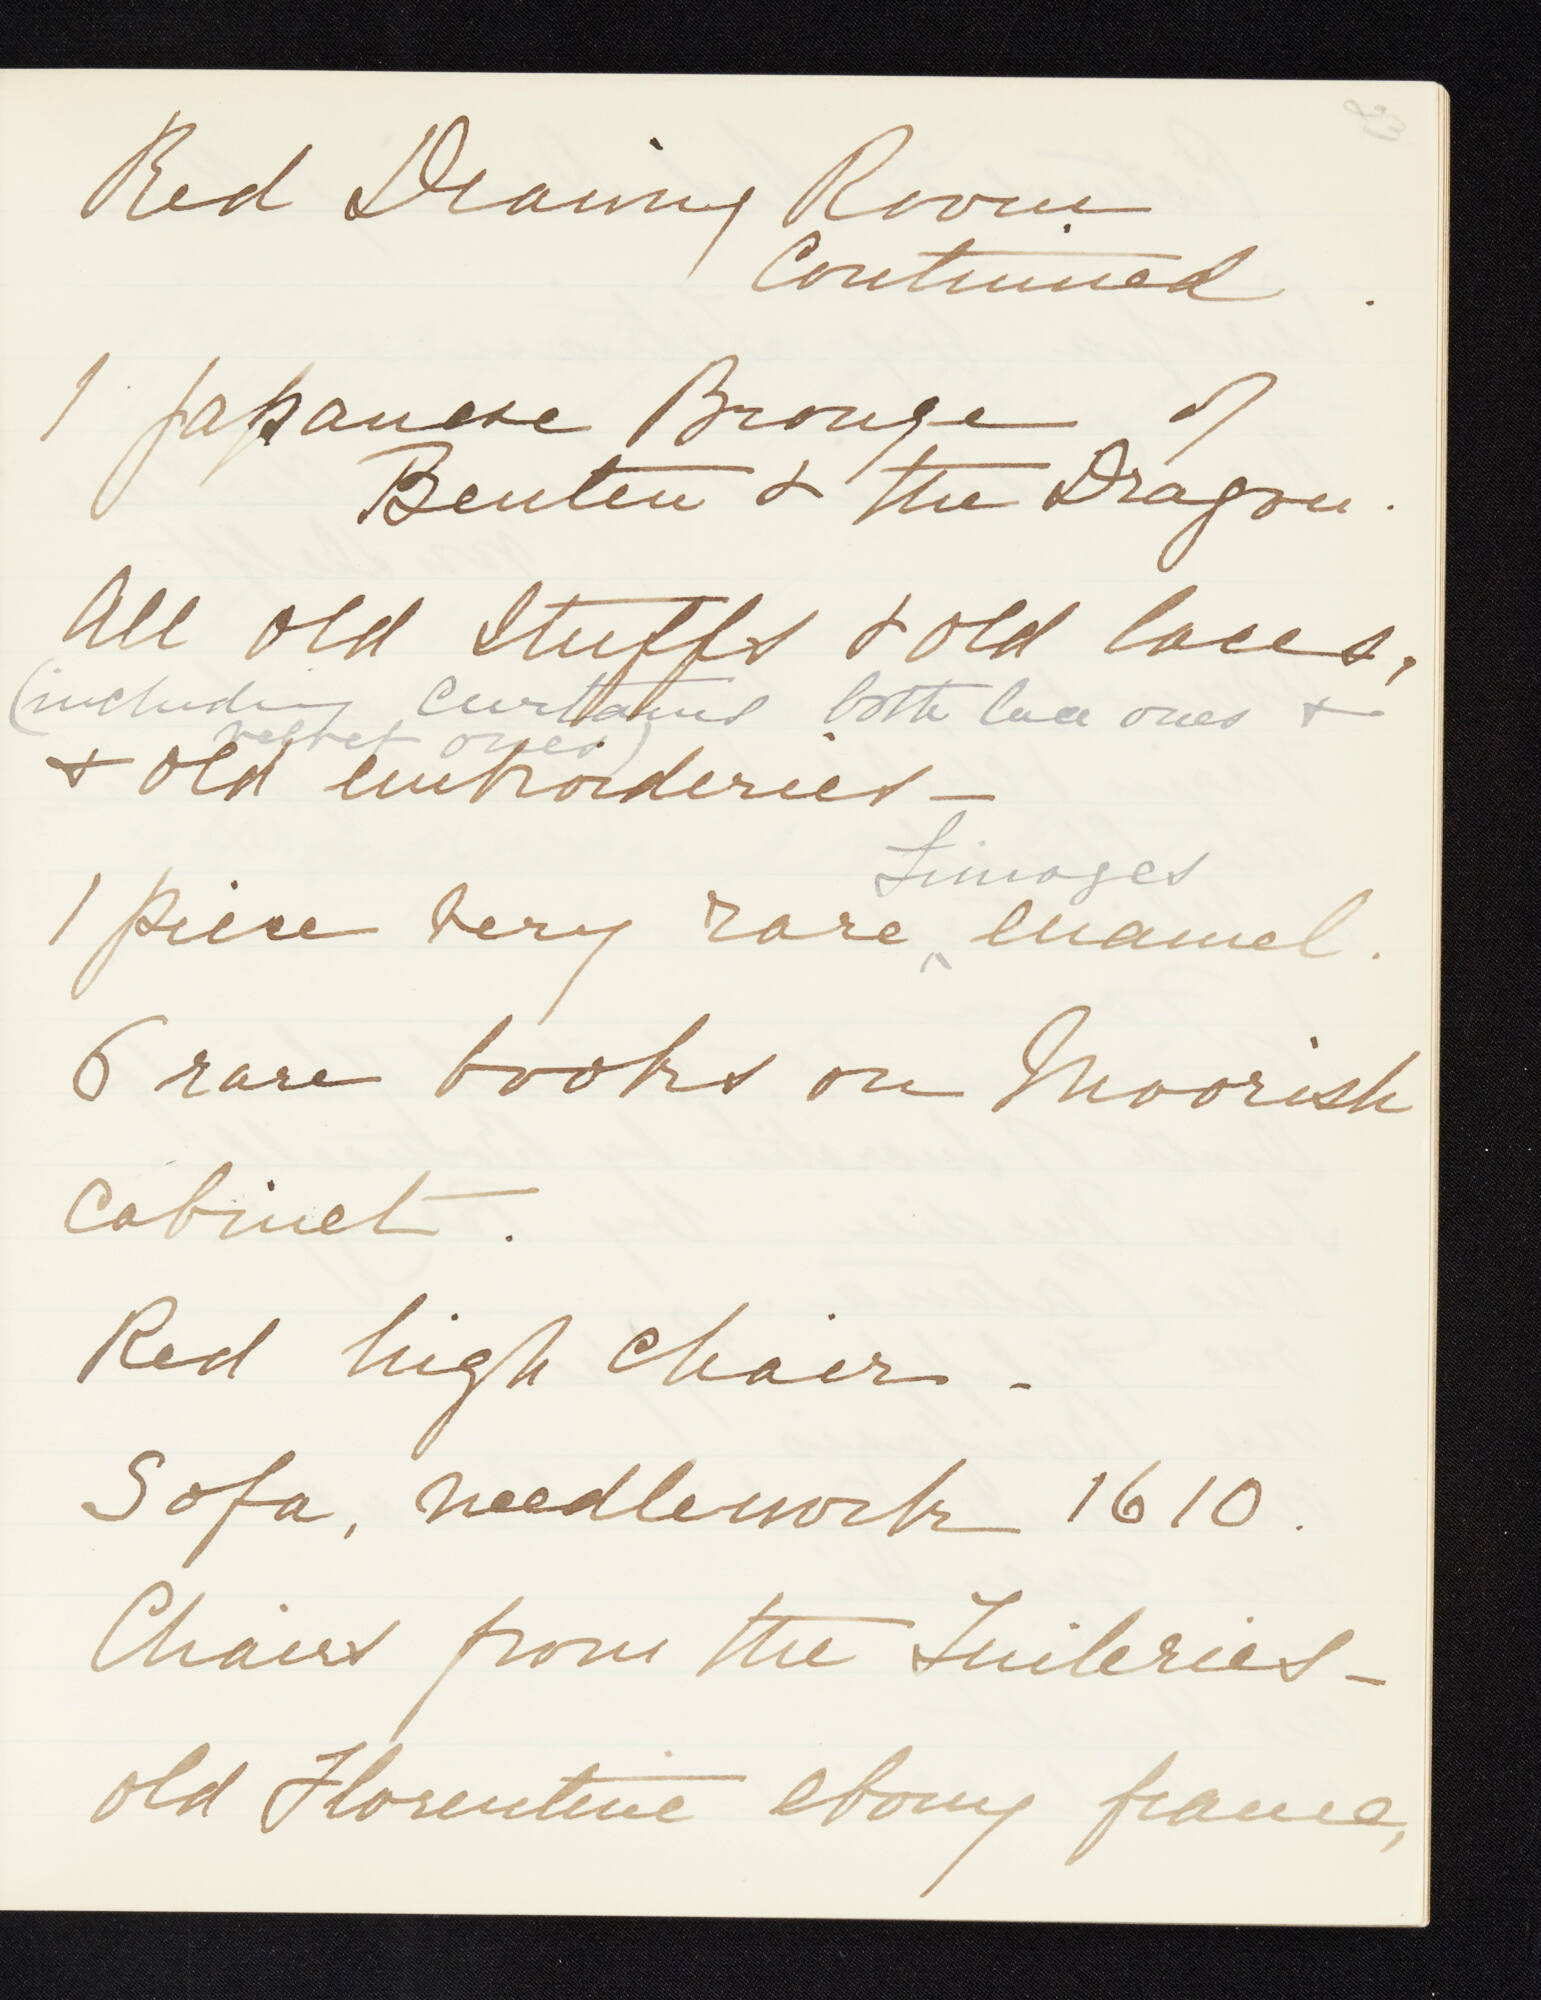 Red Drawing Room
Continued.
1 Japanese Bronze of
Benten & the Dragon.
All old stuffs & old laces,
(including curtains both lace ones &
velvet ones)
& old embroideries –
Limoges
1 piece very rare ^ enamel.
6 rare books on Moorish
cabinet.
Red high chair.
Sofa, needlework 1610.
Chairs from the Tuileries –
old Florentine ebony frame,